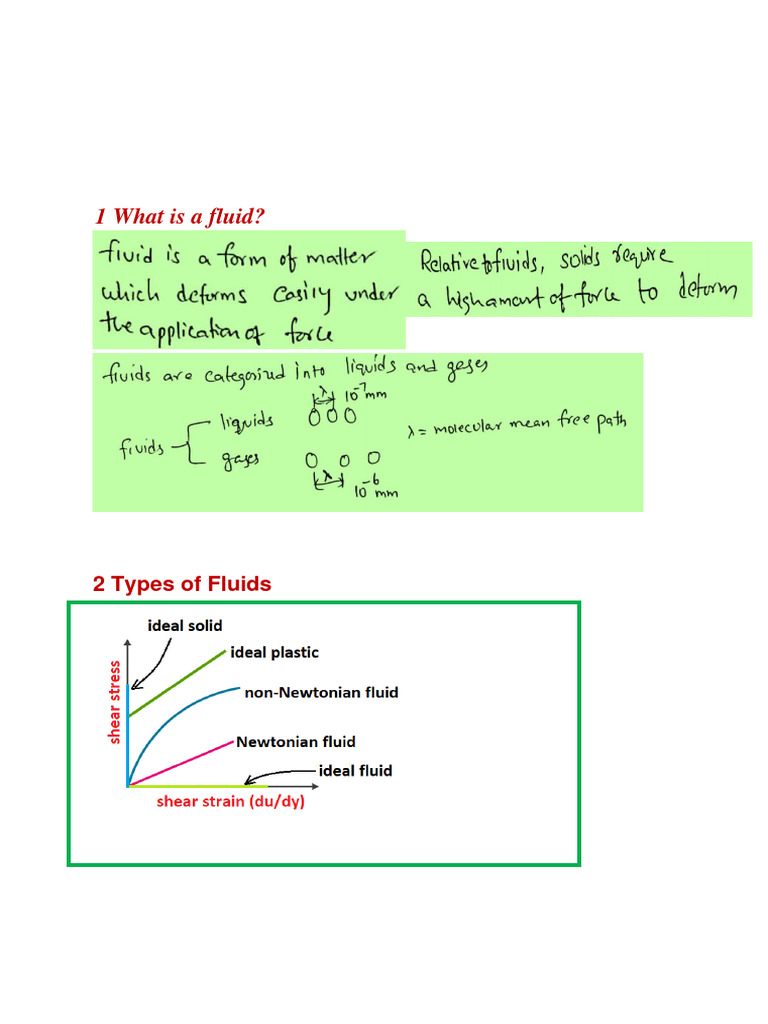 1 What is a fluid?
fluid is a form of matter
which deforms easily under
the application of force
Relative to fluids, solids require
a high amount of force to deform
fluids are categorized into liquids and gases
λ 10⁻⁷ mm
liquids
fluids
gases
λ = molecular mean free path
λ
10⁻⁶ mm
2 Types of Fluids
ideal solid
ideal plastic
non-Newtonian fluid
Newtonian fluid
ideal fluid
shear stress
shear strain (du/dy)